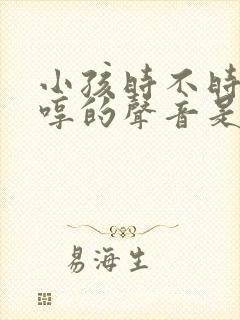 小孩時不時
哼的聲音是
易海生